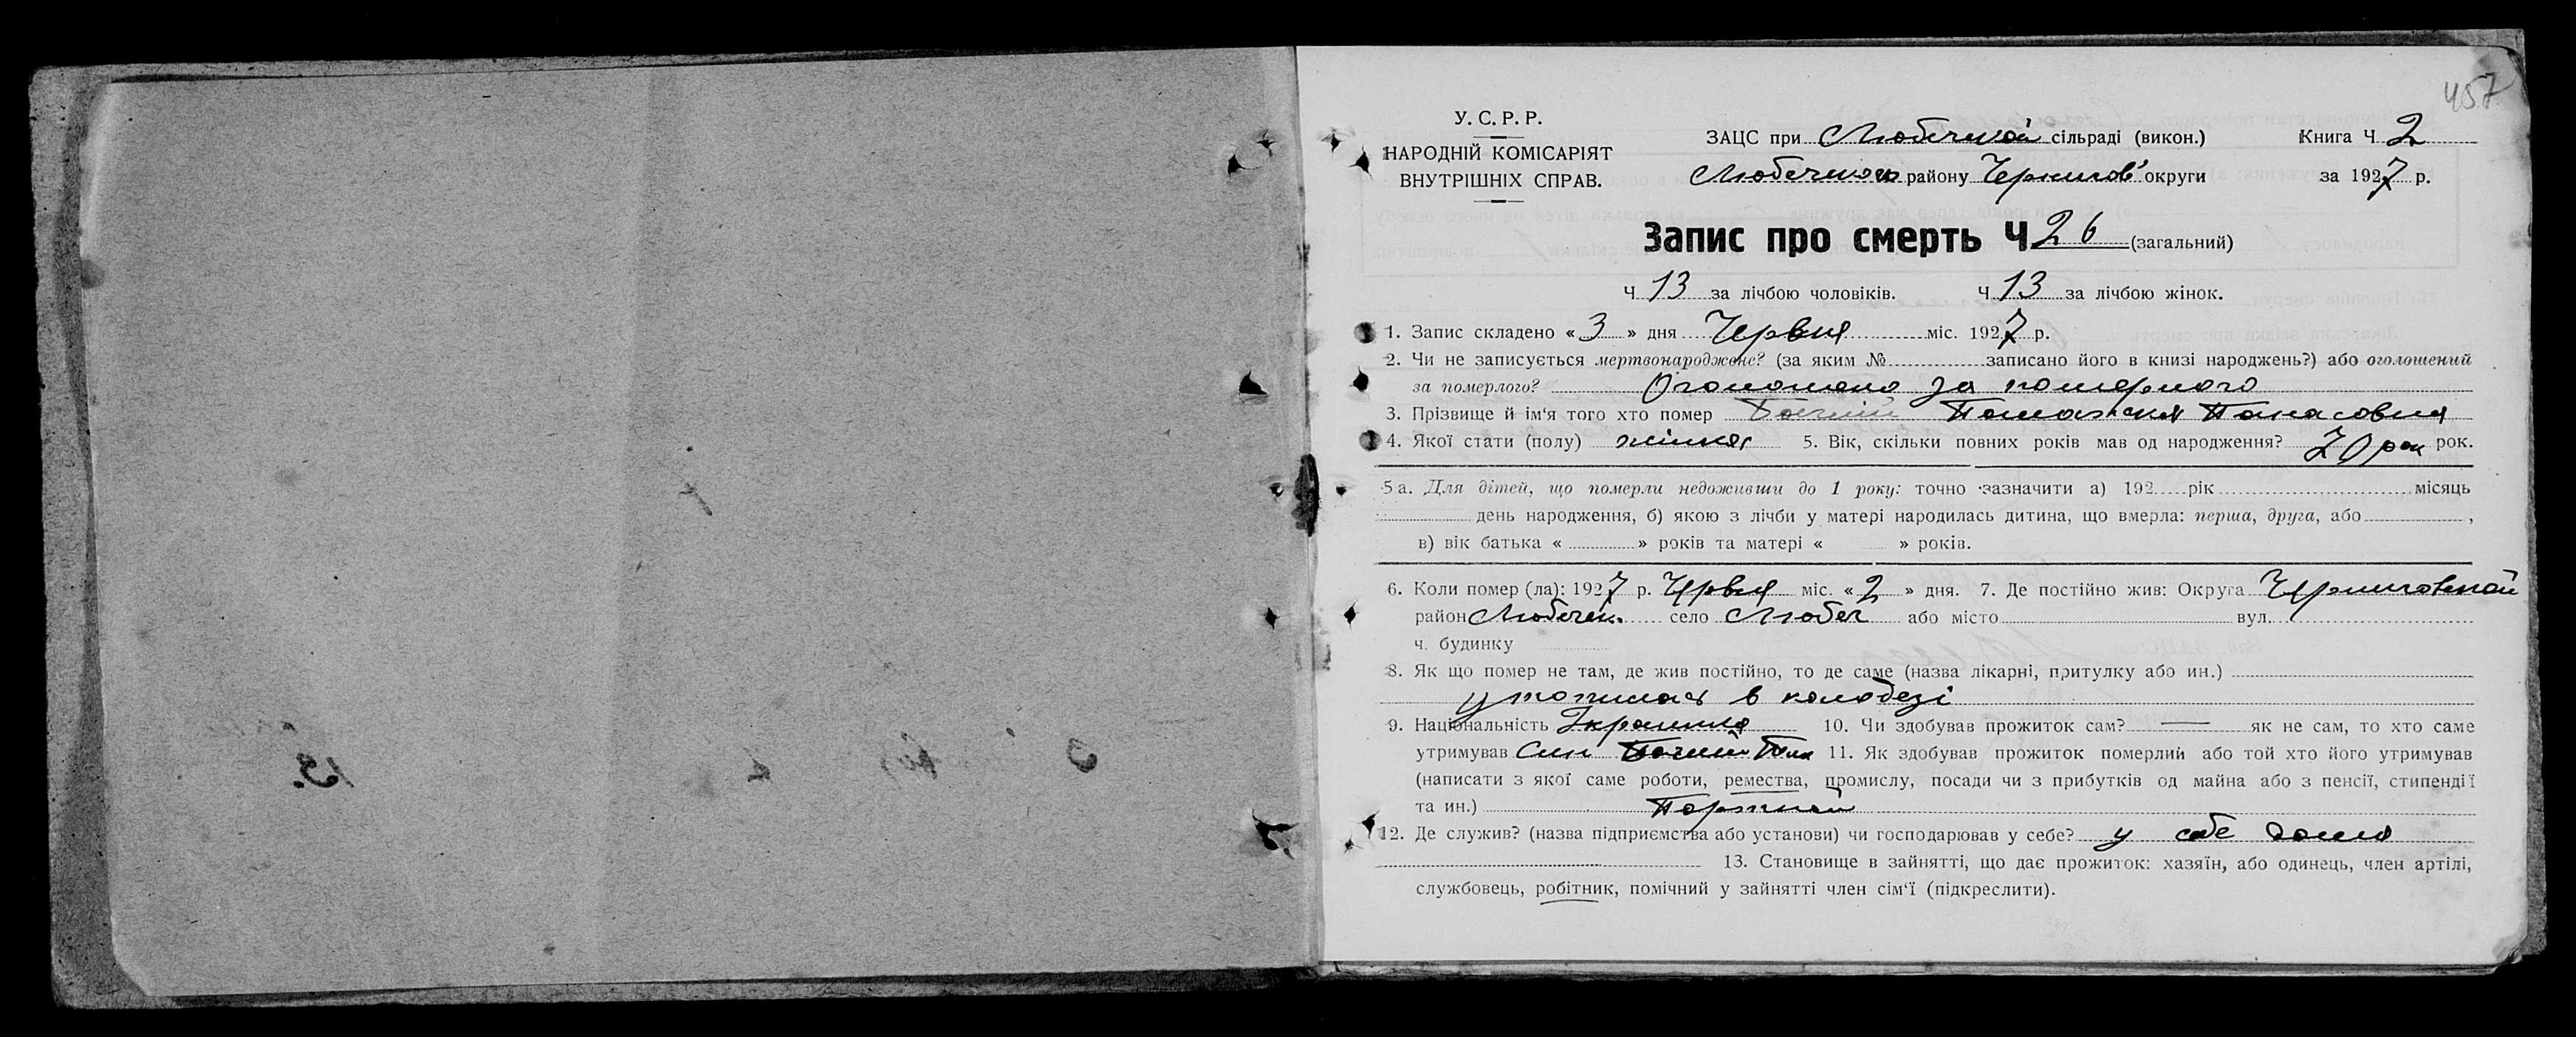 457
У. С. Р. Р.
НАРОДНІЙ КОМІСАРІЯТ
ВНУТРІШНІХ СПРАВ.
ЗАЦС при Любечской сільраді (викон.) Книга Ч 2
Любечськ району Чернигов округи за 1927 р.
Запис про смерть Ч 26 (загальний)
Ч 13 за лічбою чоловіків. Ч 13 за лічбою жінок.
1. Запис складено « 3 » дня Червня міс. 1927 р.
2. Чи не записується мертвонароджене? (за яким № записано його в книзі народжень?) або оголошений
за померлого? Оголошено за померлого
3. Прізвище й ім'я того хто помер Панасовня
4. Якої стати (полу) жінка 5. Вік, скільки повних років мав од народження? 70 рок рок.
5а. Для дітей, що померли недоживши до 1 року: точно зазначити а) 192 рік місяць
день народження, б) якою з лічби у матері народилась дитина, що вмерла: перша, друга, або ,
в) вік батька « » років та матері « » років.
6. Коли помер (ла): 1927 р. Червня міс. « 2 » дня. 7. Де постійно жив: Округа Черниговской
район Любечск. село Любеч або місто вул.
ч. будинку
8. Як що помер не там, де жив постійно, то де саме (назва лікарні, притулку або ин.)
утопилась в колодезі
9. Національність 10. Чи здобував прожиток сам? — як не сам, то хто саме
утримував Син 11. Як здобував прожиток померлий або той хто його утримував
(написати з якої саме роботи, ремества, промислу, посади чи з прибутків од майна або з пенсії, стипендії
та ин.) Портной
12. Де служив? (назва підприємства або установи) чи господарював у себе? у себе дома
13. Становище в зайнятті, що дає прожиток: хазяїн, або одинець, член артілі,
службовець, робітник, помічний у зайнятті член сім'ї (підкреслити).